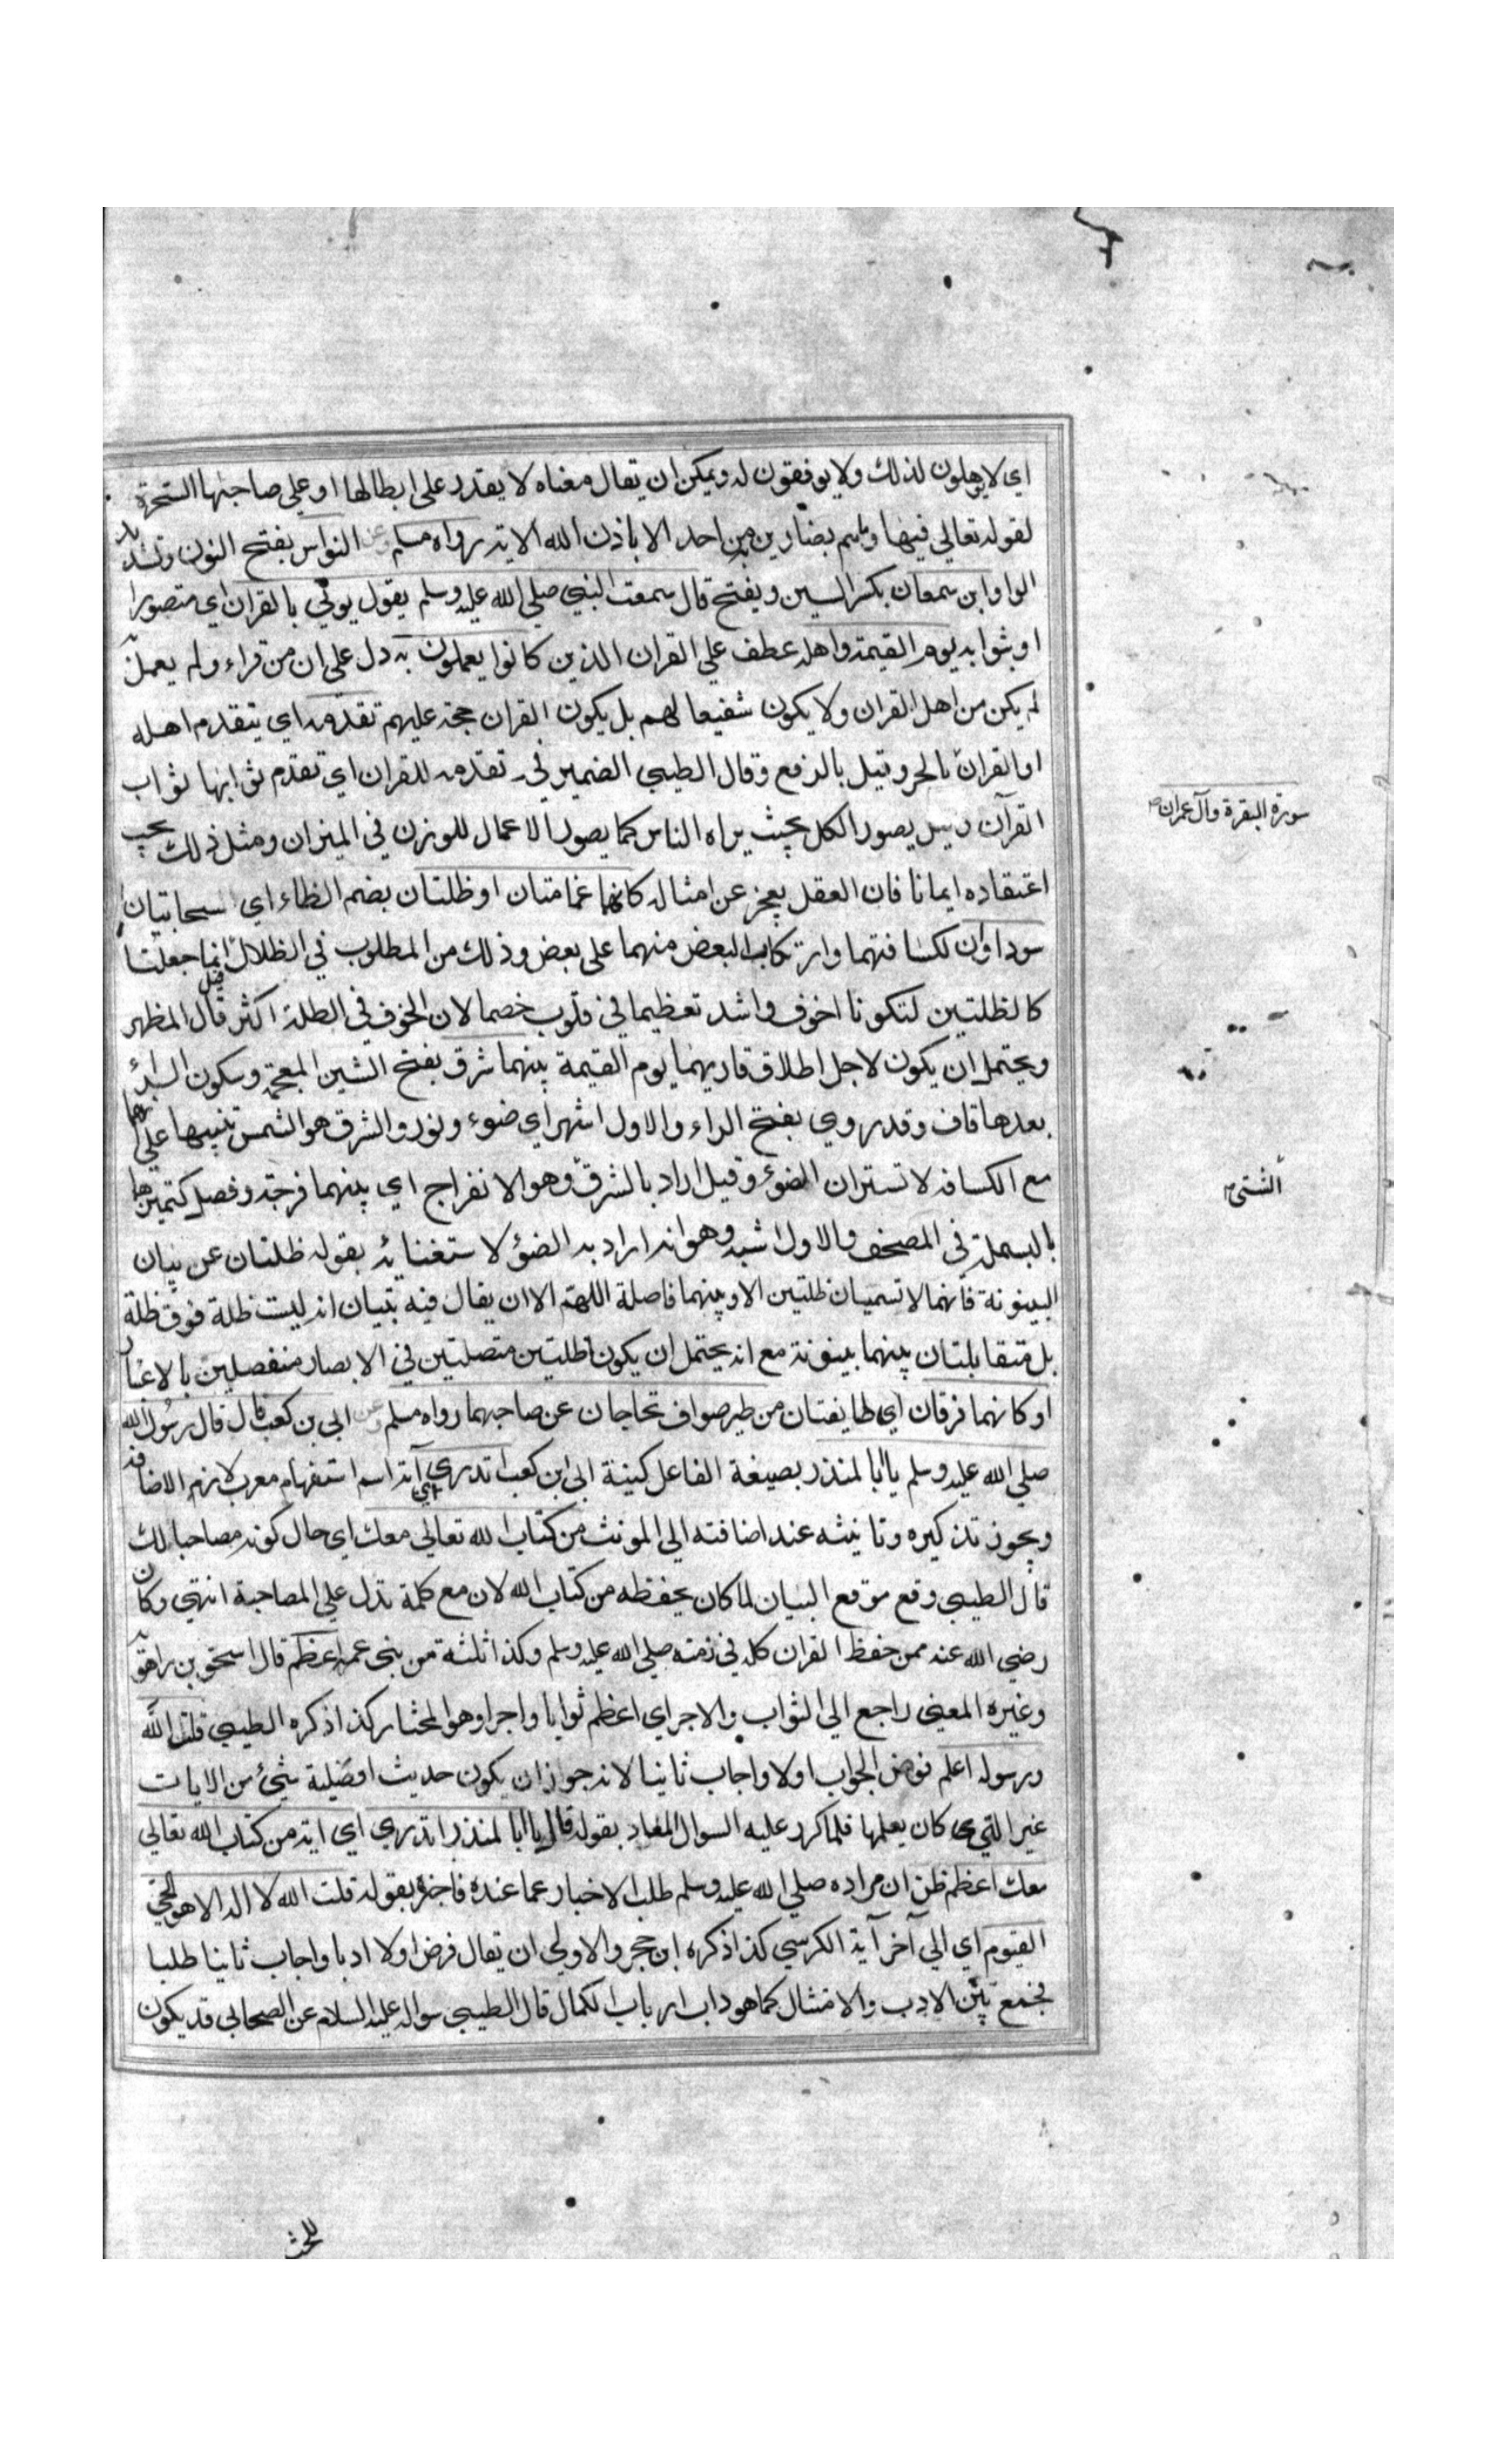 اي لا يوهلون لذلك ولا يوفقون له ويمكن ان يقال معناه لا يقدر على ابطالها او على صاحبها السحرة
لقوله تعالي فيها وما هم بضارين به من احد الا باذن الله الاية رواه مسلم وعن النواس بفتح النون وتشديد
الواو ابن سمعان بكسر السين ويفتح قال سمعت النبي صلي الله عليه وسلم يقول يوتي بالقران اي متصورا
او بثوابه يوم القيمة واهله عطف علي القران الذين كانوا يعملون به دل على ان من قراء ولم يعمل به
لم يكن من اهل القران ولا يكون شفيعا لهم بل يكون القران حجة عليهم تقدمه اي يتقدم اهله
او القران بالجر وقيل بالرفع وقال الطيبي الضمير في تقدمه للقران اي تقدم ثوابها ثواب
القرآن وقيل يصور الكل بحيث يراه الناس كما يصور الاعمال للوزن في الميزان ومثل ذلك يجب
اعتقاده ايمانا فان العقل يعجز عن امثاله كانهما غمامتان او ظلتان بضم الظاء اي سحابتان
سوداوان لكسافتهما وارتكاب البعض منهما على بعض وذلك من المطلوب في الظلال انما جعلتا
كالظلتين لتكونا اخوف واشد تعظيما في قلوب خصما لان الخوف في الظلة اكثر قال المظهر
ويحتمل ان يكون لاجل اطلاق قاريهما يوم القيمة بينهما شرق بفتح الشين المعجمة وسكون الراء
بعدها قاف وقد روي بفتح الراء والاول اشهر اي ضوء ونور والشرق هو الشمس تنبيها على انهما
مع الكسافة لا تستران الضوء وقيل اراد بالشرق وهو الانفراج اي بينهما فرجة وفصل كتميزهما
بالبسملة في المصحف والاول اشبه وهو انه اراد به الضوء لاستغنائه بقوله ظلتان عن بيان
البينونة فانهما لا تسميان ظلتين الا وبينهما فاصلة اللهم الا ان يقال فيه تبيان انه ليست ظلة فوق ظلة
بل متقابلتان بينهما بينونة مع انه يحتمل ان يكون ظلتين متصلتين في الابصار منفصلين بالاعتبار
او كانهما فرقان اي طايفتان من طير صواف تحاجان عن صاحبهما رواه مسلم وعن ابي بن كعب قال قال رسول الله
صلي الله عليه وسلم يا ابا المنذر بصيغة الفاعل كنية ابي ابن كعب اتدري اي آية اسم استفهام معرب لازم الاضافة
ويجوز تذكيره وتانيثه عند اضافته الي المونث من كتاب الله تعالي معك اي حال كونه مصاحبا لك
قال الطيبي وقع موقع البيان لما كان يحفظه من كتاب الله لان مع كلمة تدل علي المصاحبة انتهي وكان
رضي الله عنه ممن حفظ القران كله في زمنه صلي الله عليه وسلم وكذا ثلثة من بني عمه اعظم قال اسحق بن راهويه
وغيره المعني راجع الي الثواب والاجر اي اعظم ثوابا واجرا وهو المختار كذا ذكره الطيبي قلت الله
ورسوله اعلم فوض الجواب اولا واجاب ثانيا لانه جوز ان يكون حديث افضلية شئ من الايات
غير التي كان يعلمها فلما كرر عليه السوال المعاد بقوله قال يا ابا المنذر اتدري اي اية من كتاب الله تعالي
معك اعظم ظن ان مراده صلي الله عليه وسلم طلب الاخبار عما عنده فاخبره بقوله قلت الله لا اله الا هو الحي
القيوم اي الي آخر آية الكرسي كذا ذكره ابن حجر والاولي ان يقال فوض اولا ادبا واجاب ثانيا طلبا
فجمع بين الادب والامتثال كما هو داب ارباب الكمال قال الطيبي سواله عليه السلام عن الصحابي قد يكون
سورة البقرة وآل عمران
للحث